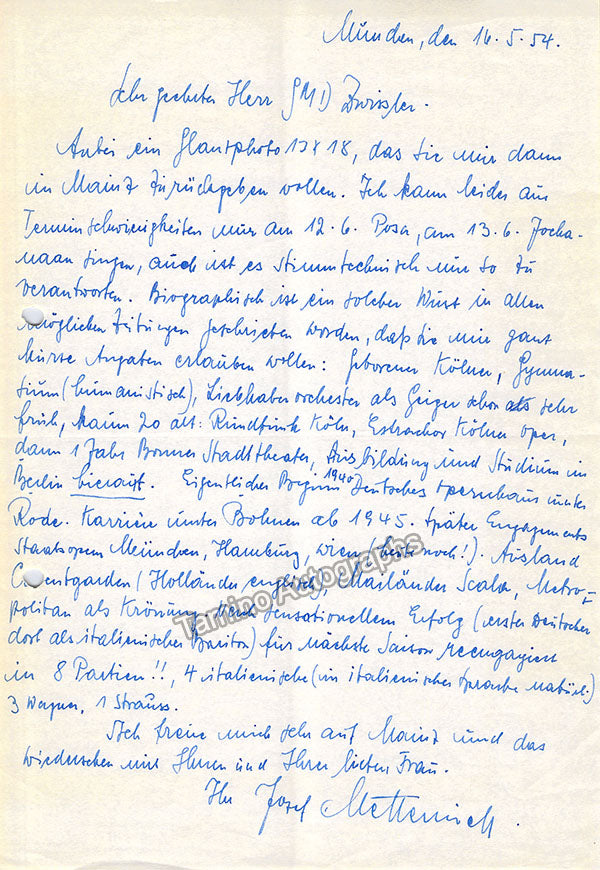 München, den 16.5.54.
Sehr geehrter Herr GMD Zwissler.
Anbei ein Glanzphoto 13x18, das Sie mir dann
in Mainz zurückgeben wollen. Ich kann leider aus
Terminschwierigkeiten nur am 12.6. Posa, am 13.6. Jocha-
naan singen, auch ist es stimmtechnisch nur so zu
verantworten. Biographisch ist ein solcher Wust in allen
möglichen Zeitungen geschrieben worden, daß Sie mir ganz
kurze Angaben erlauben wollen: geborener Kölner, Gymna-
sium (humanistisch), Liebhaberorchester als Geiger schon als sehr
früh, kaum 20 alt: Rundfunk Köln, Extrachor Kölner Oper,
dann 1 Jahr Bonner Stadttheater, Ausbildung und Studium in
Berlin hierauf. Eigentlicher Beginn 1940 Deutsches Opernhaus unter
Rode. Karriere unter Bohnen ab 1945. Später Engagements
Staatsopern München, Hamburg, Wien (heute noch!). Ausland
Coventgarden (Holländer englisch), Mailänder Scala, Metro-
politan als Krönung dank sensationellem Erfolg (erster Deutscher
dort als italienischer Bariton) für nächste Saison reengagiert
in 8 Partien!!, 4 italienische (in italienischer Sprache natürl.)
3 Wagner, 1 Strauss.
Ich freue mich sehr auf Mainz und das
Wiedersehen mit Ihnen und Ihrer lieben Frau.
Ihr Josef Metternich.
Tamino Autographs